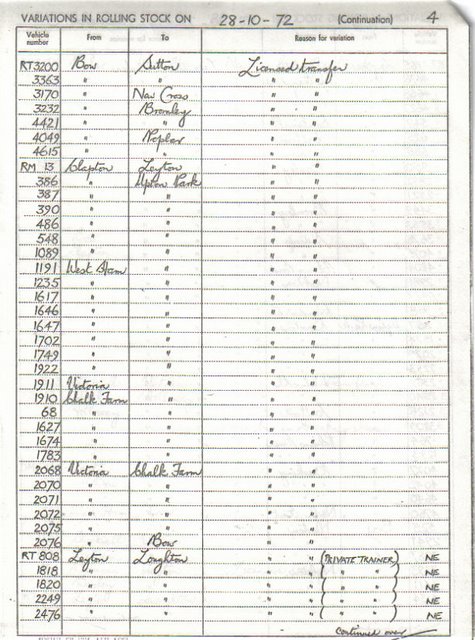 VARIATIONS IN ROLLING STOCK ON 28-10-72 (Continuation) 4
Vehicle number From To Reason for variation
RT3200 Bow Sutton Licensed transfer
3363 " " " "
3170 " New Cross " "
3232 " Bromley " "
4421 " " " "
4049 " Poplar " "
4615 " " " "
RM 13 Clapton Leyton " "
386 " Upton Park " "
387 " " " "
390 " " " "
486 " " " "
548 " " " "
1089 " " " "
1191 West Ham " " "
1235 " " " "
1617 " " " "
1646 " " " "
1647 " " " "
1702 " " " "
1749 " " " "
1922 " " " "
1911 Victoria " " "
1910 Chalk Farm " " "
68 " " " "
1627 " " " "
1674 " " " "
1783 " " " "
2068 Victoria Chalk Farm " "
2070 " " " "
2071 " " " "
2072 " " " "
2075 " " " "
2076 " Bow " "
RT 808 Leyton Loughton " " (PRIVATE TRAINER) NE
1818 " " " " ( " " ) NE
1820 " " " " ( " " ) NE
2249 " " " " ( " " ) NE
2476 " " " " ( " " ) NE
Continued over